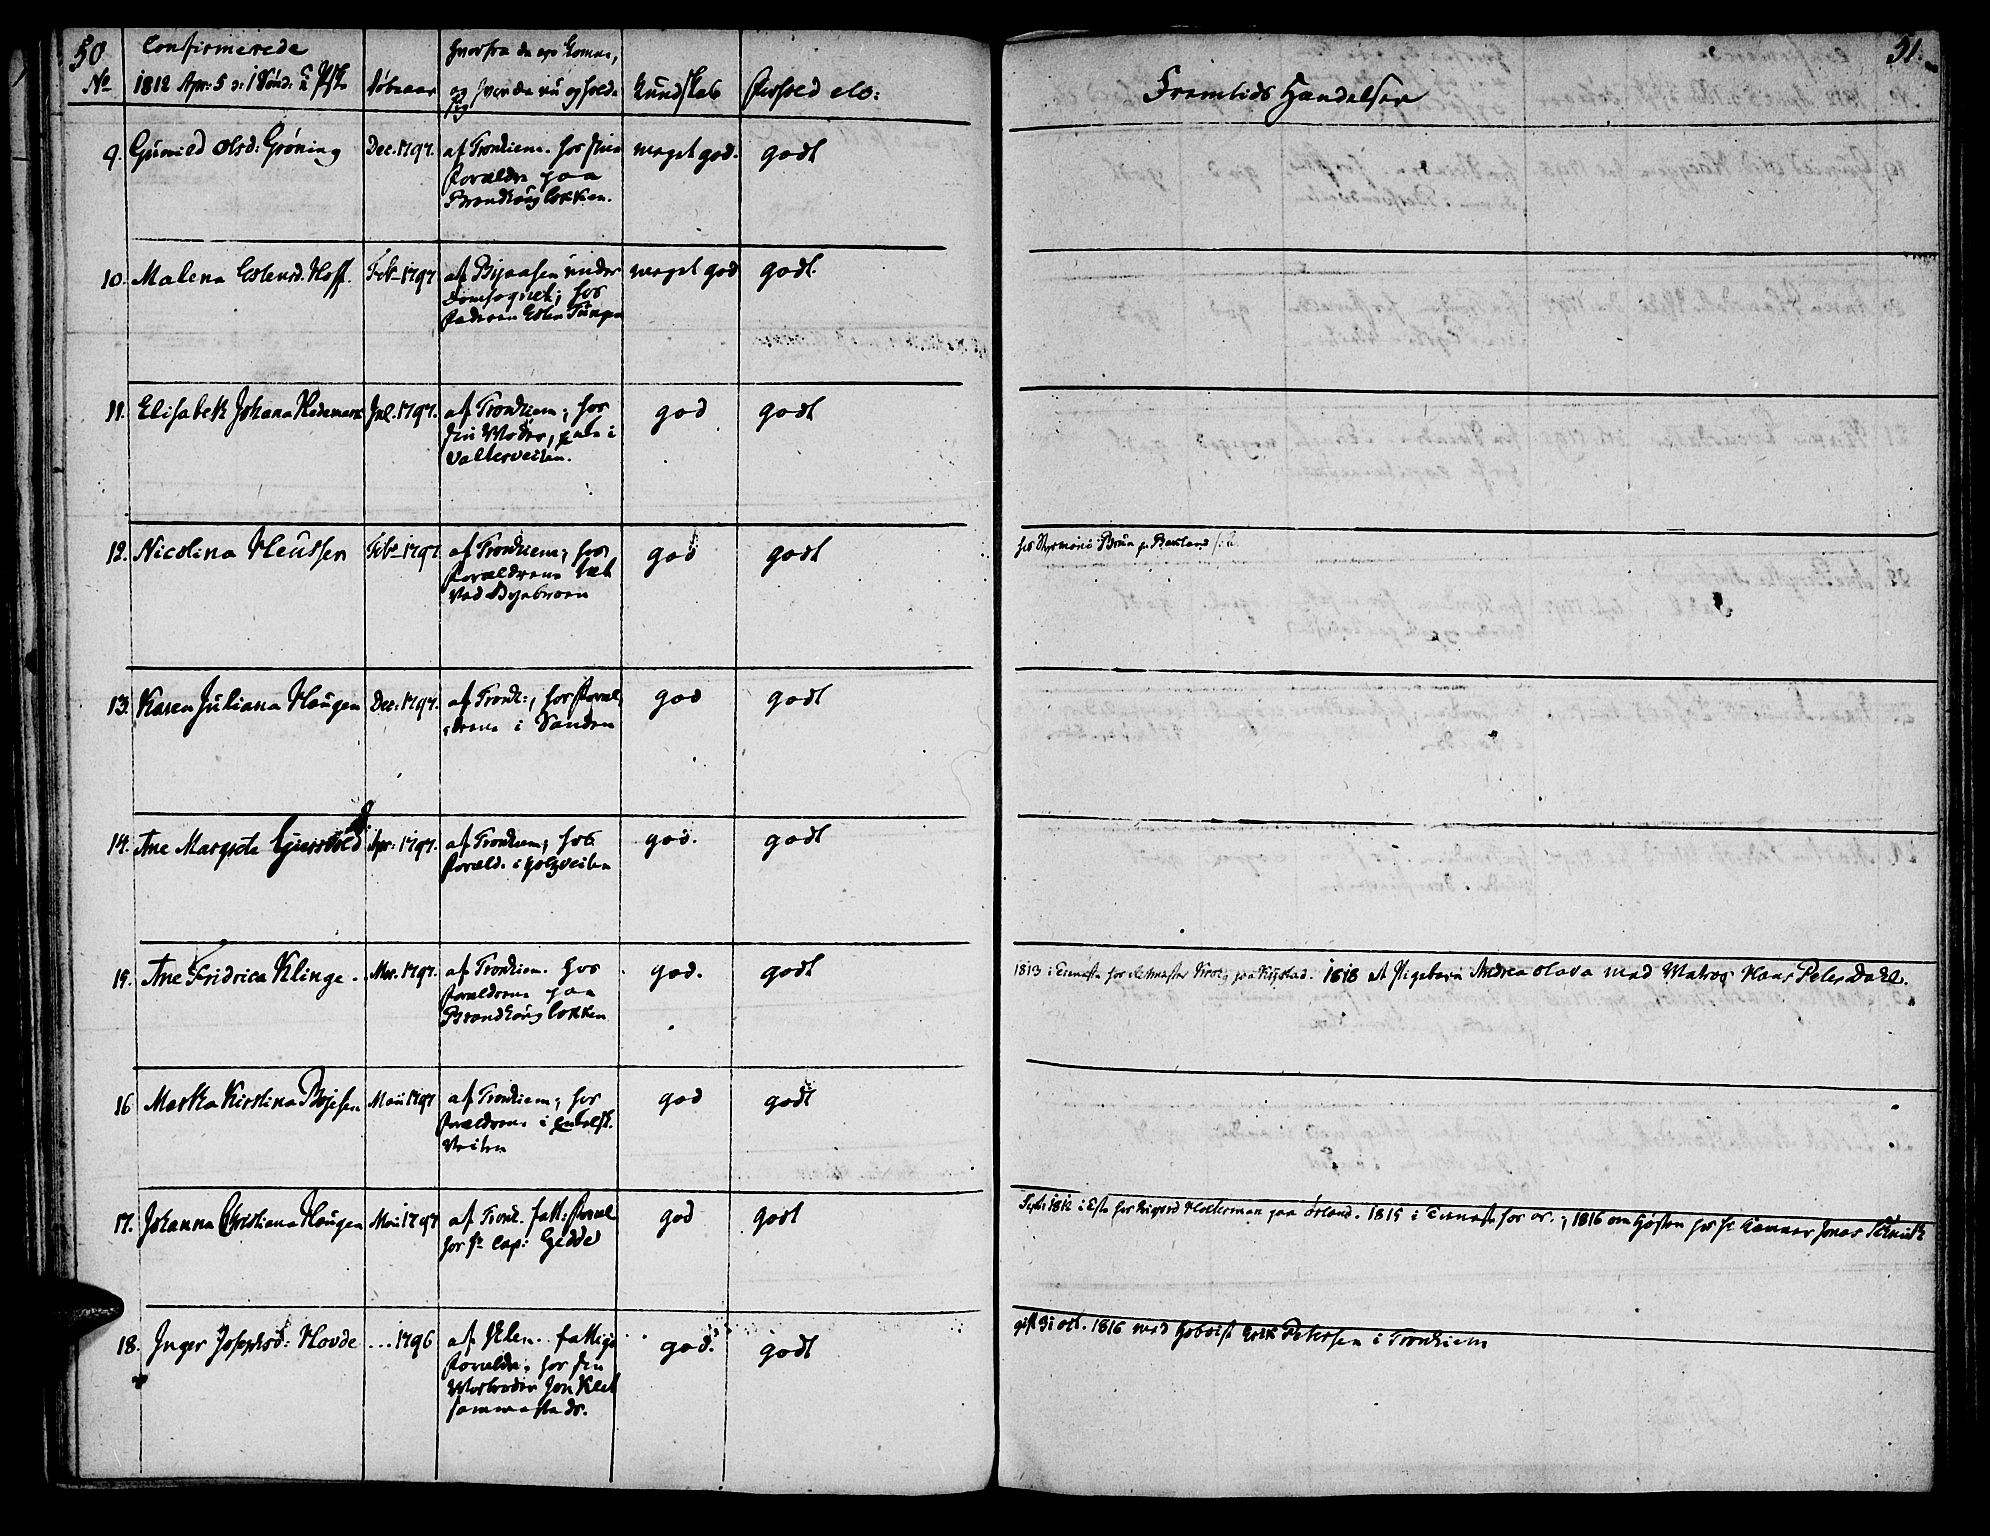 50
Confirmerede
No
1812 Apr: 5 Sønd:
Døbeaar
hvorfra de ere komne,
og hvor de nu opholde
sig
Kundskab
Forhold etc:
9. Gunild Olsd: Grøning
Dec. 1797.
af Tronhiem. hos sine
Forældre paa
Brandhøyløkken.
meget god.
godt
10. Malena Estensd. Hoff.
Feb. 1797
af Byaasen under
Domsognet; hos
Faderen Esten
meget god
godt.
11. Elisabeth Johana Hedemark
Jul. 1797.
af Tronhiem; hos
sin Moder, i
Vatterveiten.
god
godt
12. Nicolina Heussen
Febr. 1797
af Tronhiem; hos
Forældrene tæt
ved Byebroen
god
godt
13. Karen Juliana Haugen
Dec: 1797.
af Tronh:, hos Foræl-
drene i Sanden
god
godt
14. Ane Margreta
Apr: 1797.
af Tronhiem, hos
Foræld. i
god.
godt
15. Ane Fridrica Klinge.
Mar. 1797.
af Tronhiem. hos
Forældrene paa
Brandhøyløkken
god.
godt
16 Martha Kirstina Bojesen
Maii 1797
af Tronhiem; hos
Forældrene i
Veiten
god
godt
17. Johanna Christiana Haugen
Maii 1797
af Tronh. fatt: Foræl
hos Hr Cap: Gedde
god
godt
18. Inger Josephsd: Hovde
... 1796
af fattige
Forældre. hos sin
Morbroder Jon Klet
sammesteds.
god.
godt
51.
Fremtids Hændelser
hos Styrmand Bruun
1813 i Tieneste hos 1818 et Pigebarn Andrea Olava med Matros Hans Peter Dahl.
Septr 1812 i Holterman paa Ørland. 1815 i Tieneste hos ; 1816 om Høsten hos Jonas
gift 31 oct. 1816 med Erik Petersen i Tronhiem